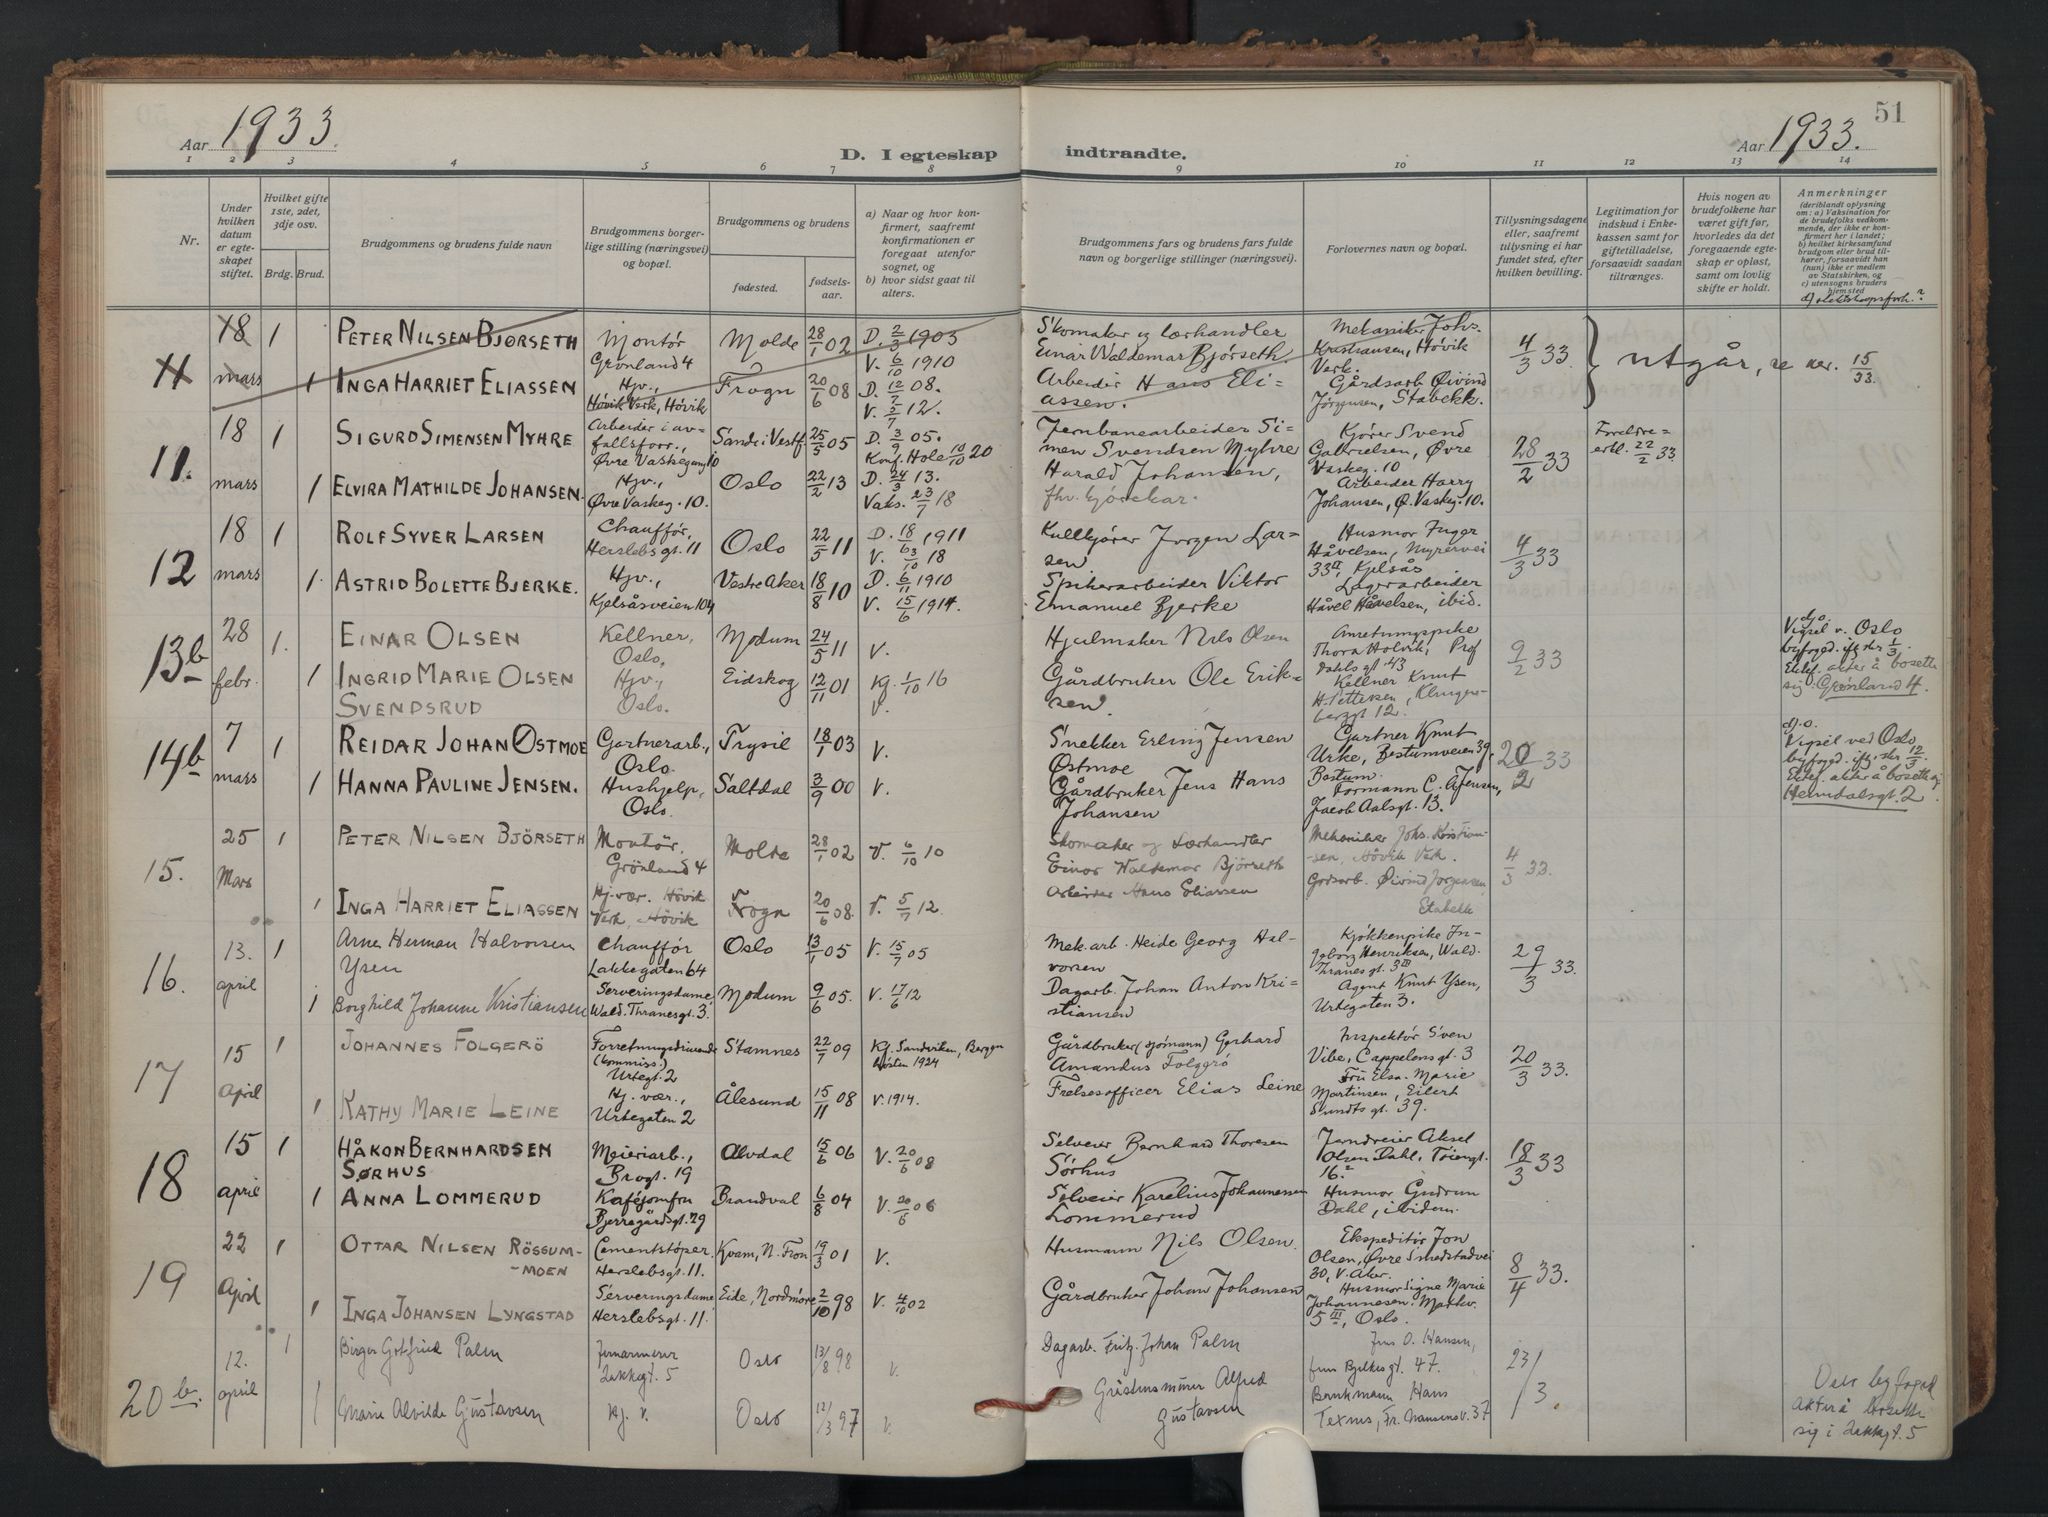 Aar 1933
D. I egteskap indtraadte.
51
Aar 1933.
1 2 3 4 5 6 7 8 9 10 11 12 13 14
Nr.
Under hvilken datum er egteskapet stiftet.
Hvilket gifte 1ste, 2det, 3dje osv.
Brdg. Brud.
Brudgommens og brudens fulde navn
Brudgommens borgerlige stilling (næringsvei) og bopæl.
Brudgommens og brudens
fødested.
fødselsaar.
a) Naar og hvor konfirmert, saafremt konfirmationen er foregaat utenfor sognet, og
b) hvor sidst gaat til alters.
Brudgommens fars og brudens fars fulde navn og borgerlige stillinger (næringsvei).
Forlovernes navn og bopæl.
Tillysningsdagene eller, saafremt tillysning ei har fundet sted, efter hvilken bevilling.
Legitimation for indskud i Enkekassen samt for giftetilladelse, forsaavidt saadan tiltrænges.
Hvis nogen av brudefolkene har været gift før, hvorledes da det foregaaende egteskap er opløst, samt om lovlig skifte er holdt.
Anmerkninger
(deriblandt oplysning om: a) Vaksination for de brudefolks vedkommende, der ikke er konfirmert her i landet;
b) hvilket kirkesamfund brudgom eller brud tilhører, forsaavidt han (hun) ikke er medlem av Statskirken, og
c) utensogns bruders hjemsted
11 18 mars 1 PETER NILSEN BJØRSETH Montør Grønland 4 Molde 28/1 02 D. 2/3 1903 V. 6/10 1910
Skomaker og lærhandler Einar Waldemar Bjørseth Mekaniker Johs. Kristiansen, Høvik Verk. 4/3 33 utgår, se nr. 15/33.
1 INGA HARRIET ELIASSEN Hjv., Høvik Verk, Høvik Frogn 20/6 08 D. 12/7 08. V. 5/7 12.
Arbeider Hans Eliassen. Gårdsarb. Øivind Jörgensen, Stabekk.
11. 18 mars 1 SIGURD SIMENSEN MYHRE Arbeider i avfallsforr., Øvre Vaskegang 10 Sande i Vestf. 25/5 05 D. 3/9 05. Konf. Hole 10/10 20
Jernbanearbeider Simen Svendsen Myhre Kjører Svend Gabrielsen, Øvre Vaskeg. 10 28/2 33 Foreldreerkl. 22/2 33.
1 ELVIRA MATHILDE JOHANSEN. Hjv., Øvre Vaskeg. 10. Oslo 22/2 13 D. 24/3 13. Vaks. 23/7 18
Harald Johansen, fhv. kjørekar. Arbeider Harry Johansen, Ø. Vaskeg. 10.
12 18 mars 1 ROLF SYVER LARSEN Chauffør, Herslebsgt. 11 Oslo 22/5 11 D. 18/6 1911 V. 3/10 18
Kullkjører Jørgen Larsen Husmor Inger Håvelsen, Myrerveien 33 II, Kjelsås 4/3 33
1. ASTRID BOLETTE BJERKE. Hjv., Kjelsåsveien 104 Vestre Aker 18/8 10 D. 6/11 1910 V. 15/6 1914.
Spikerarbeider Viktor Emanuel Bjerke Lagerarbeider Håvel Håvelsen, ibid.
13b 28 febr. 1. EINAR OLSEN Kellner, Oslo, Modum 24/5 11 V.
Hjulmaker Nils Olsen Anretningspike Thora Holvik, Prof Dahls gt. 43 9/2 33
Vigsel v. Oslo byfoged. iflg. skr. 1/3. Ektef. akter å bosette sig: Grønland 4.
1 INGRID MARIE OLSEN SVENDSRUD Hjv., Oslo. Eidskog 12/11 01 Kg. 1/10 16 V.
Gårdbruker Ole Eriksen. Kellner Knut H. Pettersen, Klingenberggt 12.
14b 7 mars 1 REIDAR JOHAN ØSTMOE Gartnerarb., Oslo. Trysil 18/1 03 V.
Snekker Erling Jensen Østmoe Gartner Knut Urke, Bestumveien 39, Bestum. 20/2 33
Vigsel ved Oslo byfogd. iflg. skr 12/3. Ektef. akter å bosette sig Heimdalsgt. 2.
1 HANNA PAULINE JENSEN. Hushjelp, Oslo. Saltdal 3/9 00 V.
Gårdbruker Jens Hans Johansen Formann C. A. Jensen, Jacob Aalsgt. 13.
15. 25 Mars 1 PETER NILSEN BJÖRSETH Montör, Grönland 4 Molde 28/1 02 V. 6/10 10
Skomaker og Lærhandler Einar Waldemar Björseth Mekaniker Johs. Kristiansen, Hövik Verk. 4/3 33.
1 INGA HARRIET ELIASSEN Hj. vær. Hövik Verk, Hövik Frogn 20/6 08. V. 5/7 12.
Arbeider Hans Eliassen Gårdsarb. Øivind Jorgensen, Stabekk
16. 13. april 1 Arne Herman Halvorsen Ysen Chauffør Lakkegaten 64 Oslo 13/1 05 V. 15/7 05
Mek. arb. Heide Georg Halvorsen Kjökkenpike Ingeborg Henriksen, Wald. Thranesgt. 3 III 29/3 33.
1 Borghild Johanne Kristiansen Serveringsdame, Wald. Thranesgt. 3. Modum 9/6 05. V. 17/6 12
Dagarb. Johan Anton Kristiansen Agent Knut Ysen, Urtegaten 3.
17 15 april 1 JOHANNES FOLGERÖ Forretningsdrivende (kommiss.) Urtegt. 2 Stamnes 22/7 09 Kg. Sandviken, Bergen Hösten 1924
Gårdbruker (sjömann) Gerhard Amandus Folgerö Inspektör Sven Vibe, Cappelensgt. 3 20/3 33.
1 KATHY MARIE LEINE Hj. vær., Urtegaten 2 Ålesund 15/11 08 V. 1914.
Frelsesofficer Elias Leine Fru Elsa Marie Martinsen, Eilert Sundts gt. 39.
18 15 april 1 HÅKON BERNHARDSEN SØRHUS Meieriarb., Brogt. 19 Alvdal 15/6 06 V. 20/6 08
Selveier Bernhard Thoresen Sörhus Jerndreier Aksel Olsen Dahl, Töiengt. 16. 18/3 33
1 ANNA LOMMERUD Kaféjomfru Bjerregårdsgt. 29 Brandval 6/8 04 V. 20/6 06
Selveier Karelius Johannessen Lommerud Husmor Gudrun Dahl, ibidem.
19 22 April 1 OTTAR NILSEN RÖSSUMMOEN Cementstöper. Herslebsgt. 11. Kvam, N. Fron 19/3 01 V.
Husmann Nils Olsen. Ekspeditör Jon Olsen, Øvre Smedstadvei 30, V. Aker. 8/4 33.
1 INGA JOHANSEN LYNGSTAD Serveringsdame Herslebsgt. 11 Eide, Nordmöre 2/10 98 V. 4/10 02
Gårdbruker Johan Johansen Husmor Signe Marie Johannesen. Markv. 5 III, Oslo.
20b. 12. april 1 Birger Gotfried Palm Lakkegt. 5 Oslo 13/8 98 V.
Dagarb. Fritz Johan Palm O. Hansen, Bjelkes gt. 47. 23/3.
1 Marie Alvilde Gustavsen Hj. v. Oslo 12/3 97 V.
Alfred Gustavsen Hans Texnes, Fr. Nansens v. 37
Oslo byfogd akter å bosette sig i Lakkegt. 5